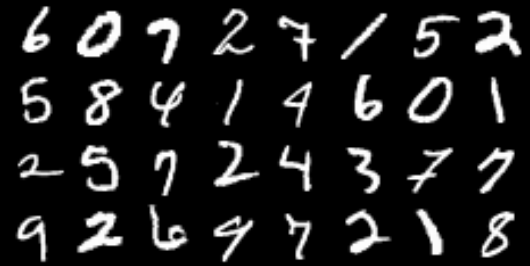 6 0 7 2 7 1 5 2
5 8 4 1 4 6 0 1
2 5 7 2 4 3 7 7
9 2 6 9 7 2 1 8